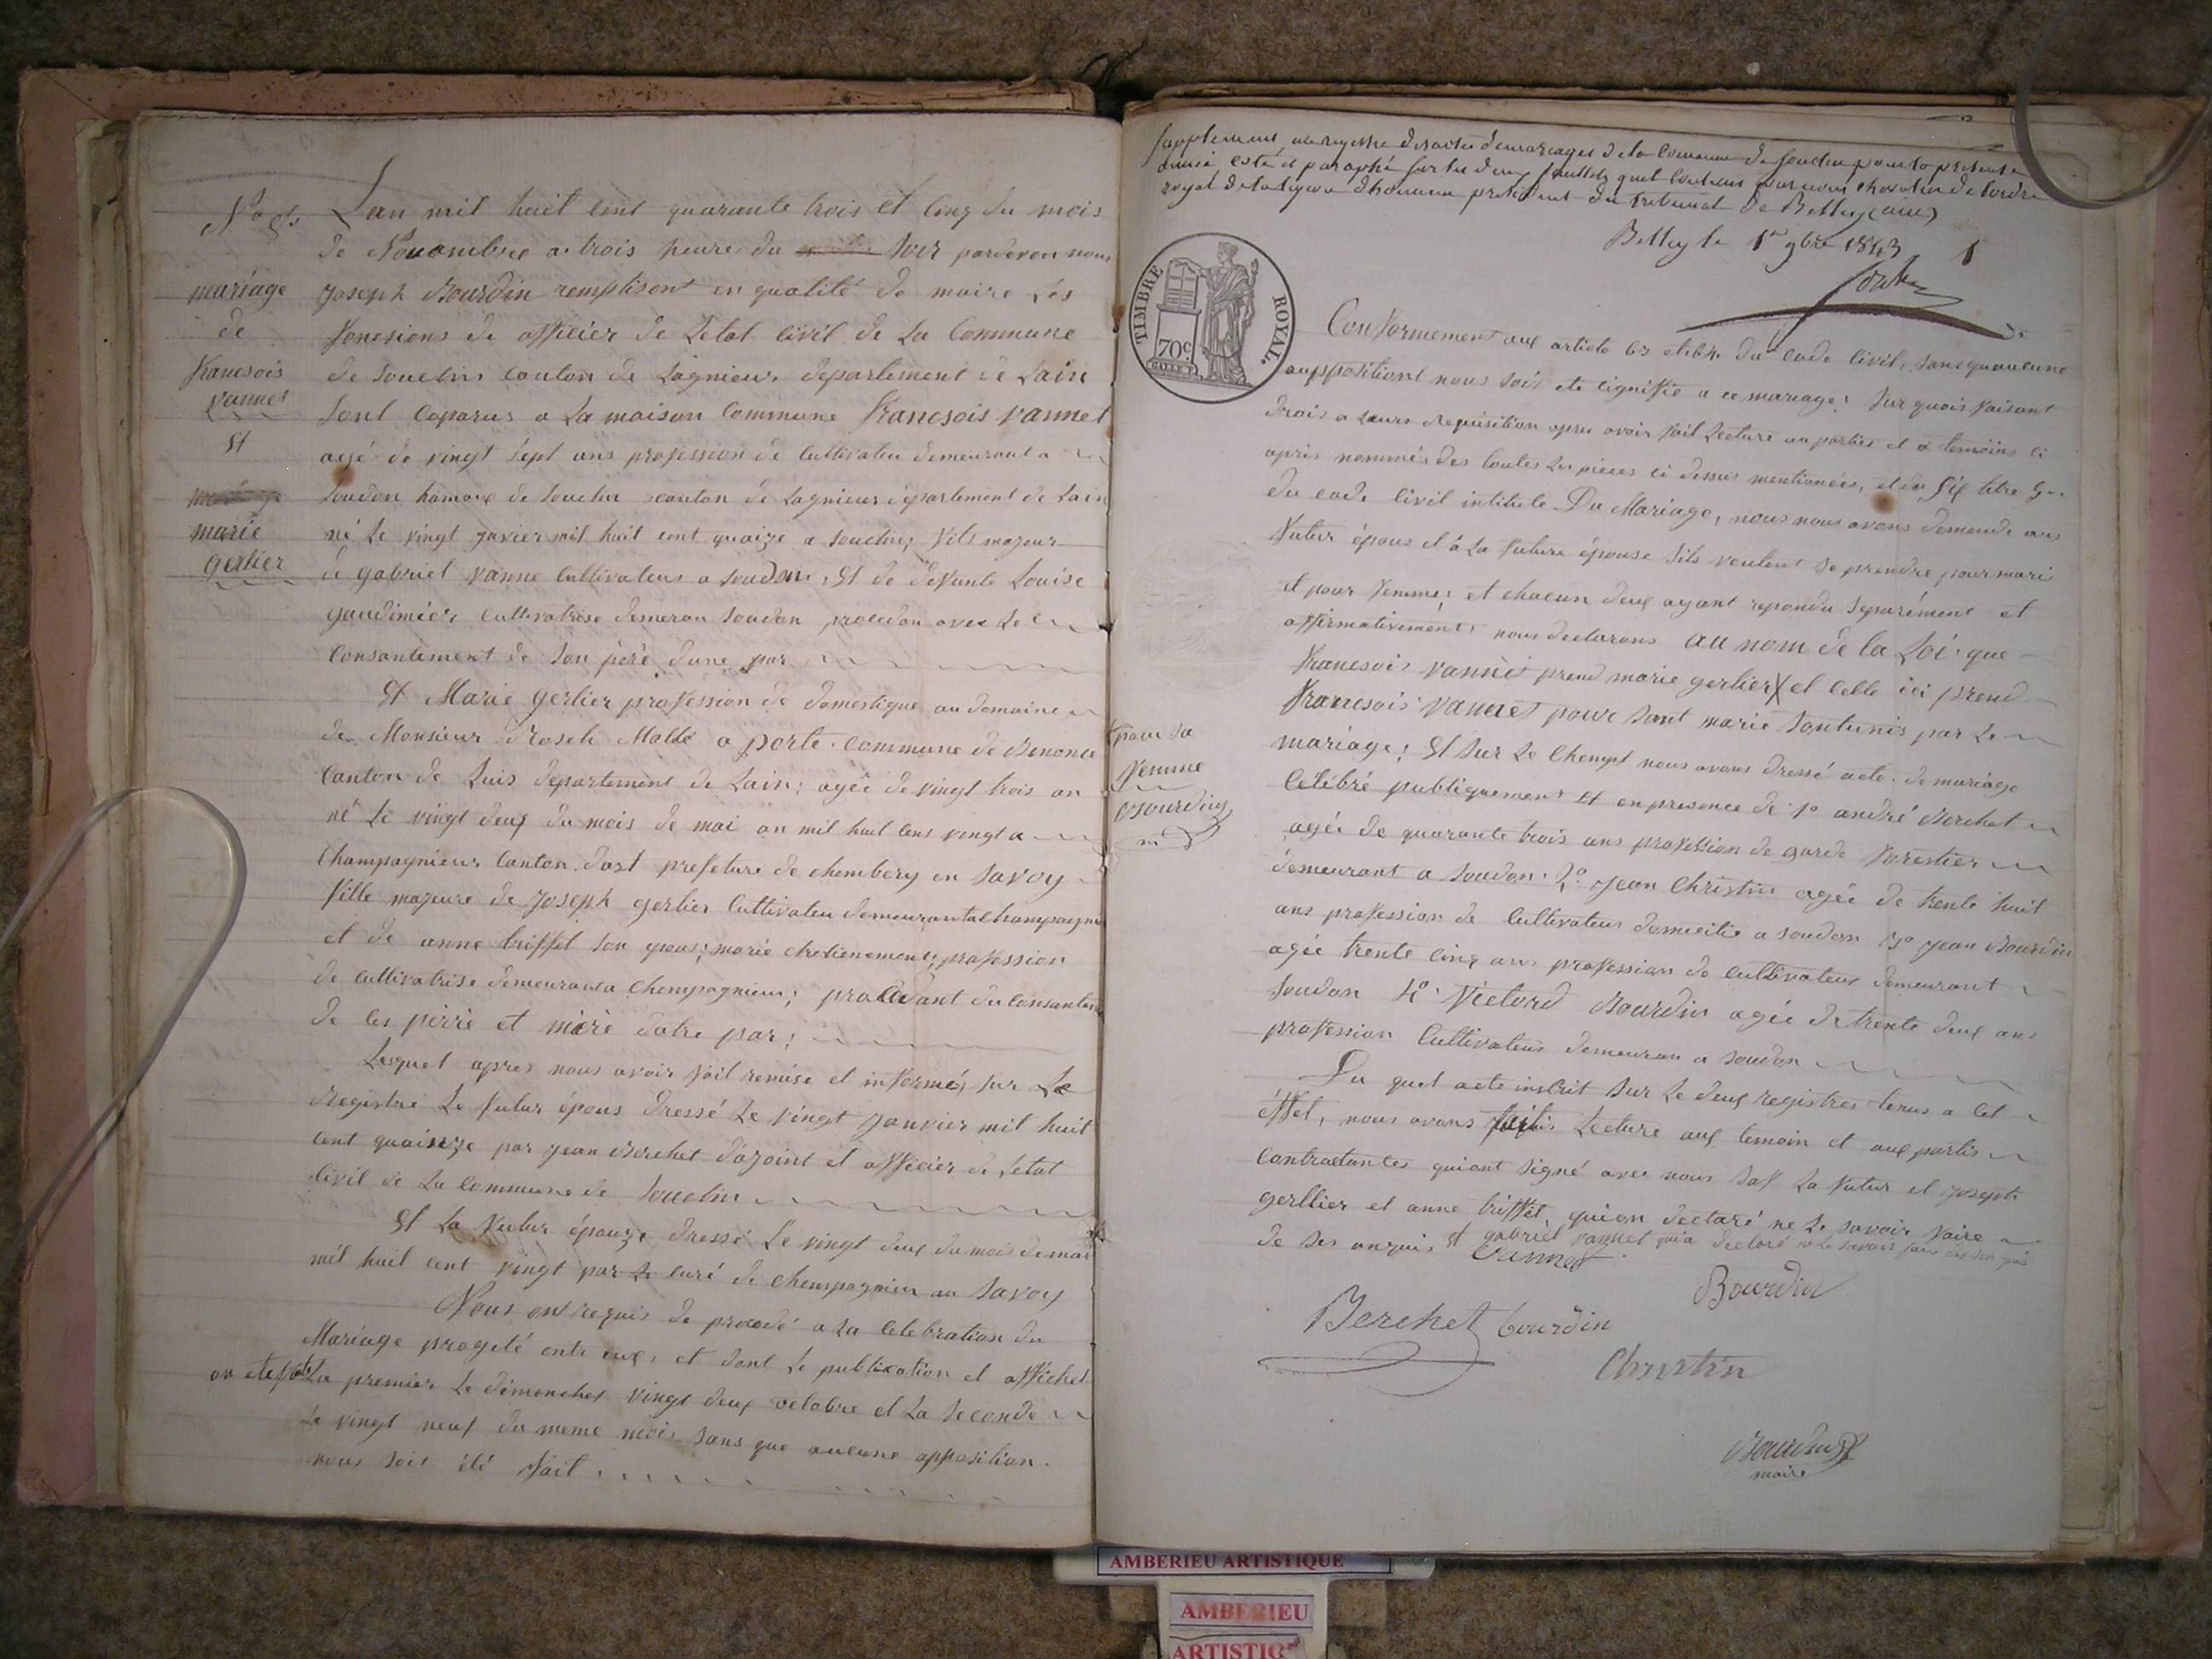 Lan mil huit cent quarante trois et cinq du mois
de Nouvombre a trois heure du soir pardevan nous
mariage
joseph Bourdin remplisent en qualité de maire les
de
fonesions de afficier de Letat civil de La Commune
francsois
de Souclin Conton de Lagnieux departement de Lain
vannet
sont Coparus a La maison Commune francsois vannet
Et
agé de vingt sept ans profession de Cultivateu demeurant a
Soudon hamaux de Souclin canton de Lagnieux departement de Lain
marie
né Le vingt janvier mil huit cent quaize a Souclin, fils majeur
gerlier
de gabriel vanne Cultivateur a Soudon, Et de defunte Louise
Cultivatrise demeran Soudon procedan avec Le
Consantement de son pére dune par
Et Marie gerlier profession de domestique au domaine
de Monsieur a porte Commune de Benonce
Canton de Luis departement de Lain; agée de vingt trois an
né Le vingt deux du mois de mai an mil huit cens vingt a
Champagnieux Canton dost prefeture de chembery en Savoy
fille majeure de joseph gerlier Cultivateu demeurant a Champagnieu
et de anne triffet son epous; marié chretienement; profession
de cultivatrise demeuran a Chempagnieux; procedant du Consantem
de ces perre et mére dotre par;
Lesquel apres nous avoir fait remise et informés sur Le
Registre Le futur épous dressé Le vingt janvier mil huit
cent quainze par jean Berchet dajoint et afficier de Letat
civil de La Commune de Souclin
Et La futur épouze dressé Le vingt deux du mois de mai
mil huit cent vingt par Le curé de chempagnieu an Savoy
Nous ont requis de procedé a La Celebration du
Mariage progeté entre eux, et dont Le publication et affiches
on ete faites La premier Le dimenches vingt deux octobre et La Seconde
Le vingt neuf du meme mois sans que aucune apposition
nous soit été fait
Supplement au registre des actes de mariages de la Commune de Souclin pour la presente
année coté et paraphé par chevalier de lordre
royal de la Légion dhonneur président du Tribunal de Belley (ain)
Belley le 1er 9bre 1843
1
TIMBRE ROYAL
70c
Conformement aux article 63 et 64 du code Civil, sans quaucune
auppositiont nous soit ete signifié a ce mariage; Sur quois faisant
drois a Leurs Requisition apres avoir fait Lecture au parties et a temoins ci
apris nommés des toutes Les pieces ci dessus mentionées, et du Six titre 5
du code Civil intitule Du Mariage, nous nous avons demende aux
futur épous et a La future épouse Sils veulent Se prendre pour mari
et pour femme; et chacun deux ayant repondu Separément et
affirmativement, nous declarons au nom de la Loi que
francsois vannet prend marie gerlier X et Celle ici prend
francsois vannet pour sont marie Sont unis par Le
X pour sa
femme
Bourdin
mariage; Et Sur Le Chempt nous avons dressé acte de mariage
Celébré publiquement Et en presence de 1º andré Berchet
agée de quarante trois ans profession de garde forestier
demeurant a Soudon. 2º jean Christin agée de trente huit
ans profession de Cultivateur domicilie a Soudon 3º jean Bourdin
agée trente cinq ans profession de cultivateur demeurant
Soudon 4º Victord Bourdin agée de trente deux ans
profession Cultivateur demeuran a Soudon
Du quel acte inscrit sur Le deux registres tenus a Cet
éffet, nous avons Lecture aux temoin et aux partis
Contractantes quiont signé avec nous Saf La futur et joseph
gerllier et anne triffet, quion declaré ne Le Savoir faire
de Ses anquis Et gabriel vannet quia declaré ne Le Savoir faire
vannet
Bourdin
Berchet bourdin
Christin
Bourdin
maire
AMBERIEU ARTISTIQUE
AMBERIEU
ARTISTIQ